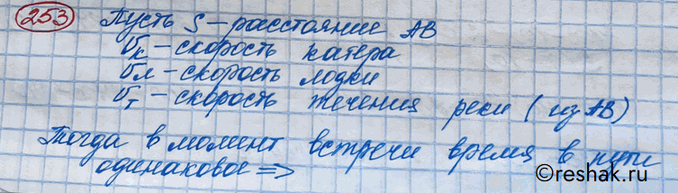 253 Пусть S – расстояние AB
υк – скорость катера
υл – скорость лодки
υт – скорость течения реки (из AB)
Тогда в момент встречи время в пути
одинаковое =>
reshak.ru